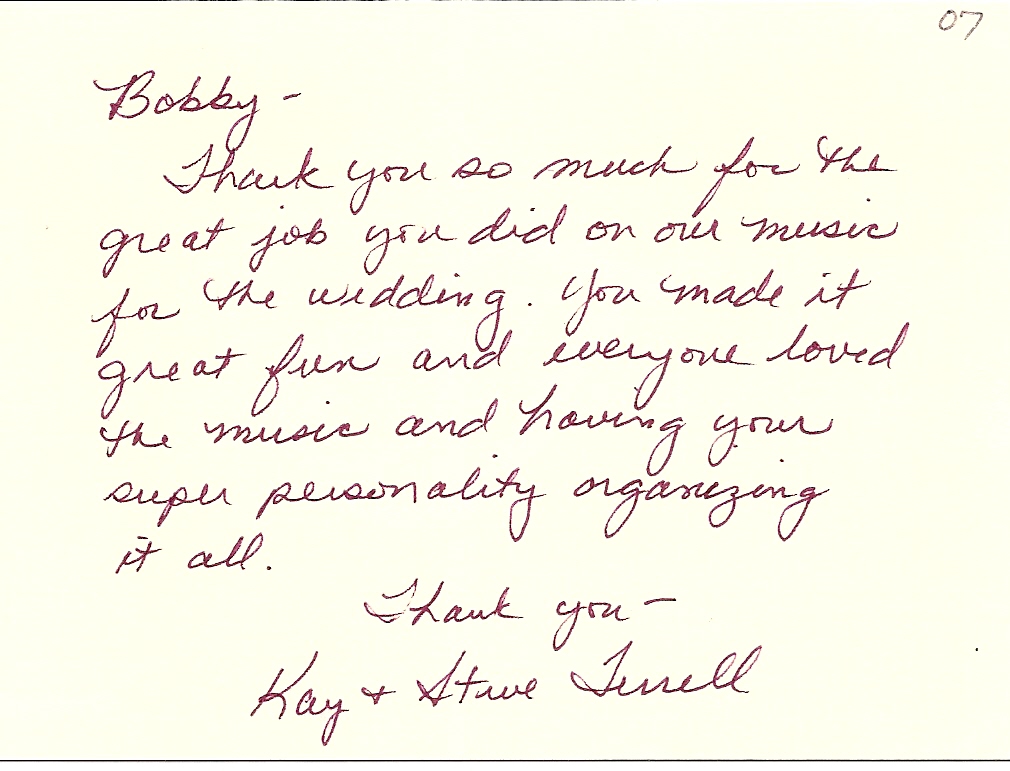 07
Bobby -
Thank you so much for the
great job you did on our music
for the wedding. You made it
great fun and everyone loved
the music and having your
super personality organizing
it all.
Thank you -
Kay + Steve Terrell